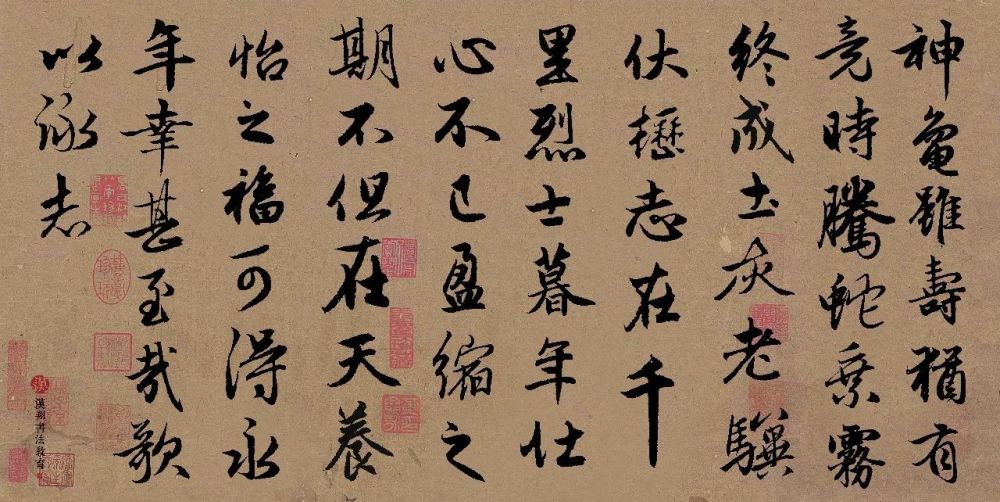 神龜雖壽猶有
竟時騰蛇乘霧
終成土灰老驥
伏櫪志在千
里烈士暮年壯
心不已盈縮之
期不但在天養
怡之福可得永
年幸甚至哉歌
以詠志
漢翔書法教育